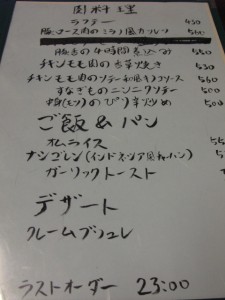 肉料理
ラフテー 450
豚ロース肉のミラノ風カツレツ 500
豚舌の4時間煮込み 550
チキンもも肉の香草焼き 530
チキンもも肉のソテー和風キノコソース 580
すなぎものニンニクソテー 500
(ミツ)のぴり辛炒め 500
ご飯 & パン
オムライス 55
ナシゴレン(インドネシア風チャーハン) 55
ガーリックトースト
デザート
クレームブリュレ
ラストオーダー 23:00